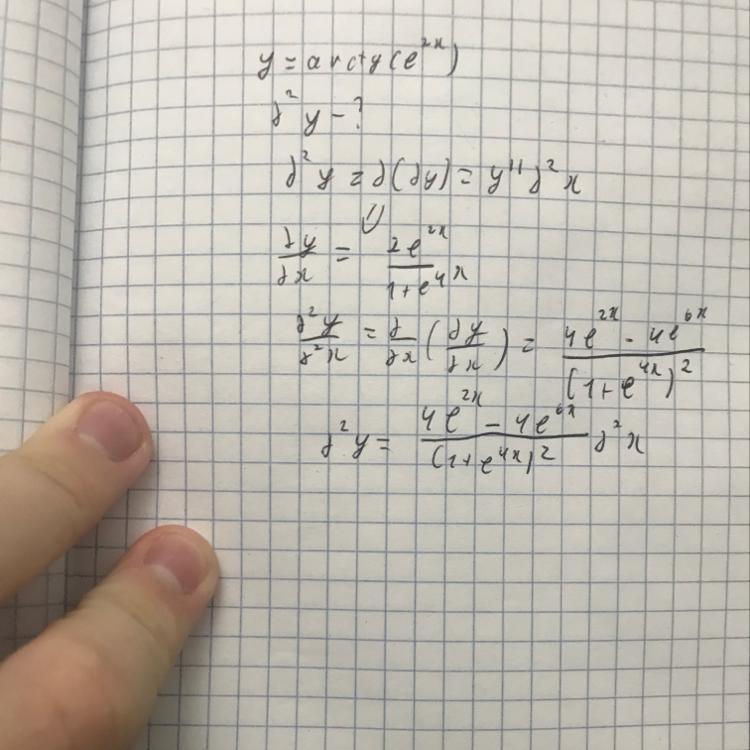 y = arctg(e^{2x})
d²y - ?
d²y = d(dy) = y'' d²x
dy/dx = 2e^{2x}/(1+e^{4x})
d²y/d²x = d/dx (dy/dx) = (4e^{2x} - 4e^{6x})/(1+e^{4x})²
d²y = (4e^{2x} - 4e^{6x})/(1+e^{4x})² d²x